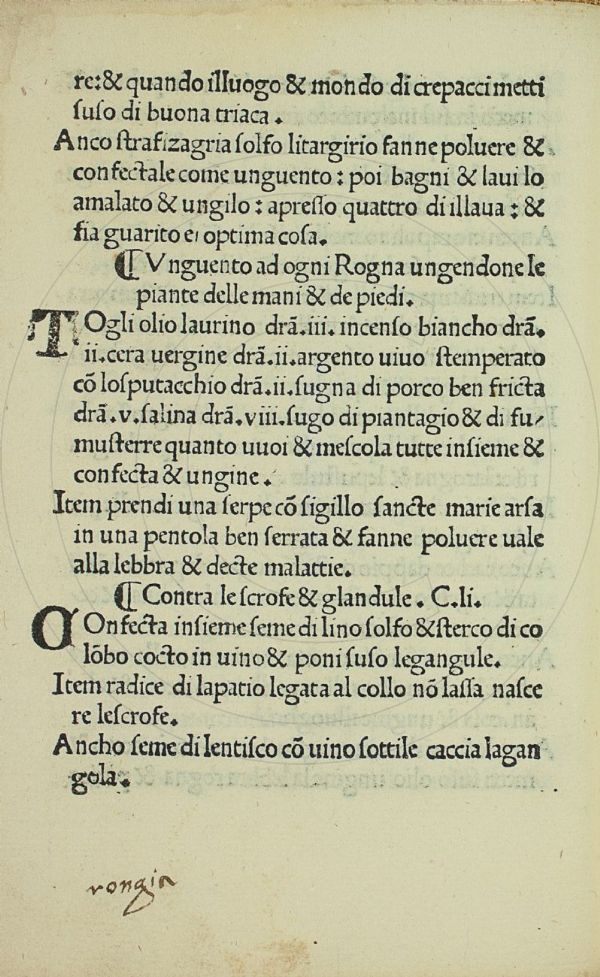 re:& quando il luogo & mondo di crepacci metti
ſuſo di buona triaca.
Anco ſtrafizagria ſolfo litargirio fanne poluere &
confectale come unguento: poi bagni & laui lo
amalato & ungilo: apreſſo quattro di illaua: &
ſia guarito ei optima coſa.
¶ Vnguento ad ogni Rogna ungendone le
piante delle mani & de piedi.
TOgli olio laurino drã.iii. incenſo biancho drã.
ii.cera uergine drã.ii.argento uiuo ſtemperato
cõ loſputacchio drã.ii.ſugna di porco ben fricta
drã.v.ſalina drã.viii.ſugo di piantagio & di fu/
muſterre quanto uuoi & meſcola tutte inſieme &
confecta & ungine.
Item prendi una ſerpe cõ ſigillo ſancte marie arſa
in una pentola ben ſerrata & fanne poluere uale
alla lebbra & decte malattie.
¶ Contra le ſcrofe & glandule. C.li.
COnfecta inſieme ſeme di lino ſolfo & ſterco di co
lõbo cocto in uino & poni ſuſo legangule.
Item radice di lapatio legata al collo nõ laſſa naſce
re leſcrofe.
Ancho ſeme di lentiſco cõ uino ſottile caccia lagan
gola.
rongia